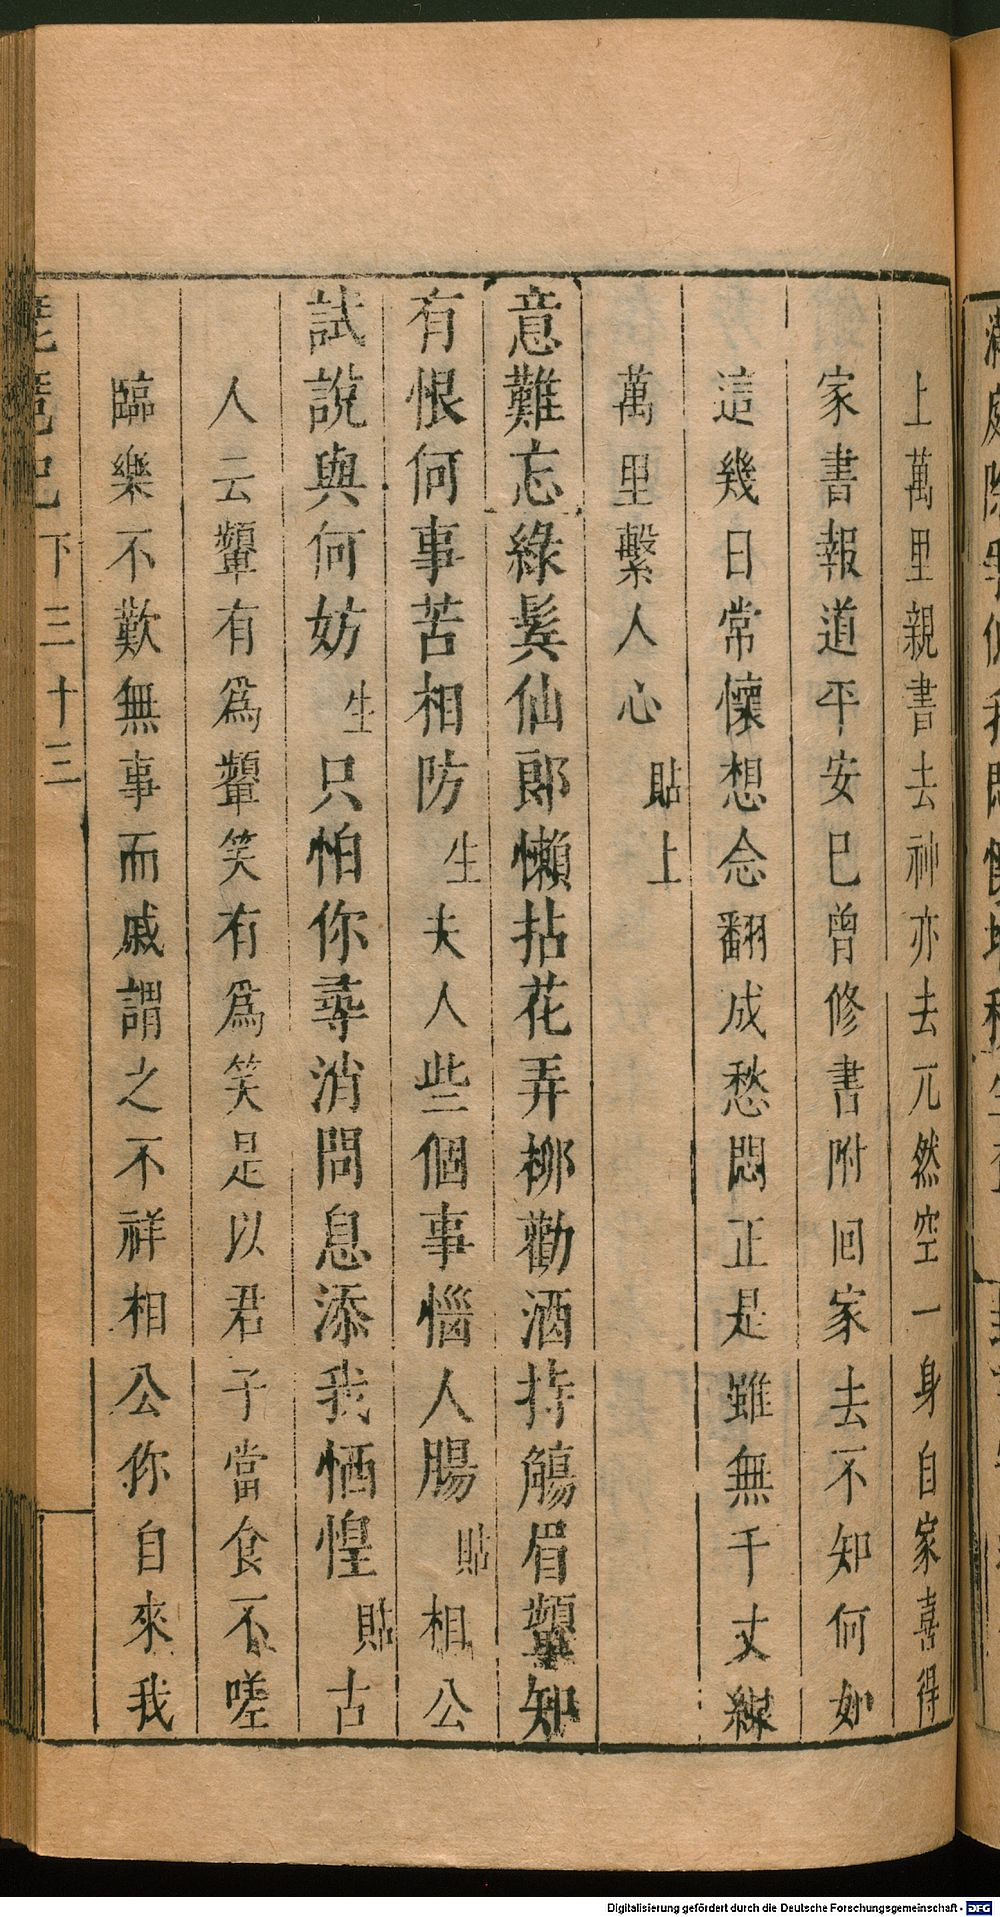 上萬里親書去神亦去兀然空一身自家喜得
家書報道平安巳曾修書附回家去不知何如
這幾日常懷想念翻成愁悶正是雖無千丈線
萬里繫人心貼上
意難忘綠鬂仙郎懶拈花弄柳勸酒持觴眉顰知
有恨何事苦相防生夫人些個事惱人腸貼相公
試說與何妨生只怕你尋消問息添我恓惶貼古
人云顰有爲顰笑有爲笑是以君子當食不嗟
臨樂不歎無事而戚謂之不祥相公你自來我
琵琶记 下 三十三
Digitalisierung gefördert durch die Deutsche Forschungsgemeinschaft - DFG